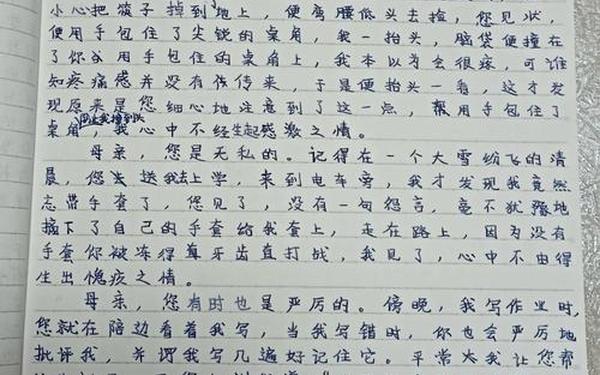 小心把筷子掉到地上，便弯腰低头去捡，您见状，
便用手包住了尖锐的桌角，我一抬头，脑袋便撞在
了你谷用手包住的桌角上，我本以为会很疼，可谁
知疼痛感并没有传传来，于是便抬头一看，这才发
现原来是您细心地注意到了这一点，帮用手包住了
桌角，我心中不经生起感激之情。
母亲，您是无私的。记得在一个大雪纷飞的清
晨，您去送我去上学，来到电车旁，我才发现我竟然
忘带手套了，您见了，没有一句怨言，毫不犹豫地
摘下了自己的手套给我套上，走在路上，因为没有
手套你被冻得牙齿直打战，我见了，心中不由得
生出愧疚之情。
母亲，您有时也是严厉的。傍晚，我写作业时，
您就在陪边看着我写，当我写错时，你也会严厉地
批评我，并谓我写几遍好记住它。平常大我让您帮